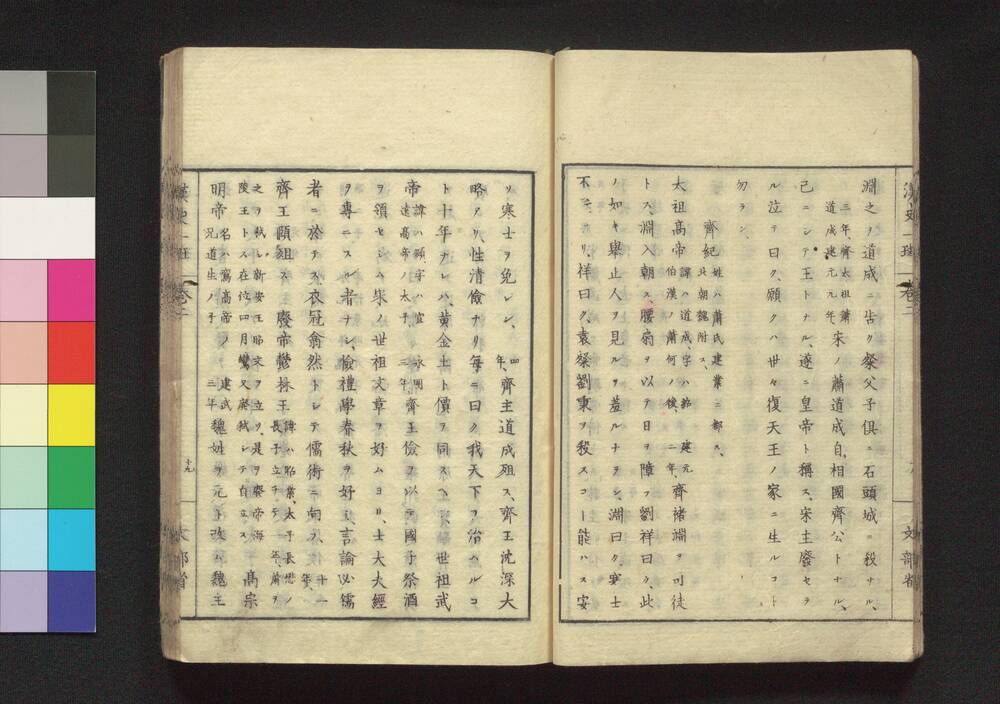 淵之ヲ道成ニ告ク粲父子俱ニ石頭城ニ殺サル、
三年齊太祖蕭道成建元元年、宋ノ蕭道成自相國齊公トナル、
己ニシテ王トナル、遂ニ皇帝ト稱ス、宋主廢セラ
ル泣テ曰ク願クハ世々復天王ノ家ニ生ルコト
勿ラン、
齊紀 姓ハ蕭氏建業ニ都ス、北朝魏附ス、
太祖高帝 諱ハ道成、字ハ紹伯漢ノ蕭何ノ後 建元二年、齊褚淵ヲ司徒
トス、淵入朝ス、腰扇ヲ以テ日ヲ障フ劉祥曰ク、此
ノ如キ擧止人ヲ見ルヲ羞ルナラン、淵曰ク、寒士
不遜ナリ、祥曰ク、袁粲劉秉ヲ殺スコト能ハス安
漢史一班 卷二
文部省
リ寒士ヲ免レン、四年、齊主道成殂ス、齊王沈深大
略アリ性清儉ナリ每ニ曰ク我天下ヲ治ハルコ
ト十年ナレハ、黃金土ト價ヲ同スヘシ、世祖武
帝 諱ハ頤字ハ宣遠高帝ノ太子、永明二年、齊王儉ヲ以テ國子祭酒
ヲ領セシム宋ノ世祖文章ヲ好ムヨリ、士大夫經
ヲ專ニスル者ナシ、儉禮學春秋ヲ好ミ言論必儒
者ニ於テス、衣冠翕然トシテ儒術ニ向フ、十一年、
齊王頤殂ス 廢帝鬱林王 諱ハ昭業、太子長懋ノ長子立チテ一年、蕭
之ヲ弑シ新安王昭文ヲ立ツ、是ヲ廢帝海陵王トス在位四月鸞又廢弑シテ自立ス、高宗
明帝 名ハ鸞高帝ノ兄道生ノ子 建武三年 魏姓ヲ元ト改ム魏主
漢史一班 卷二
十九
文部省